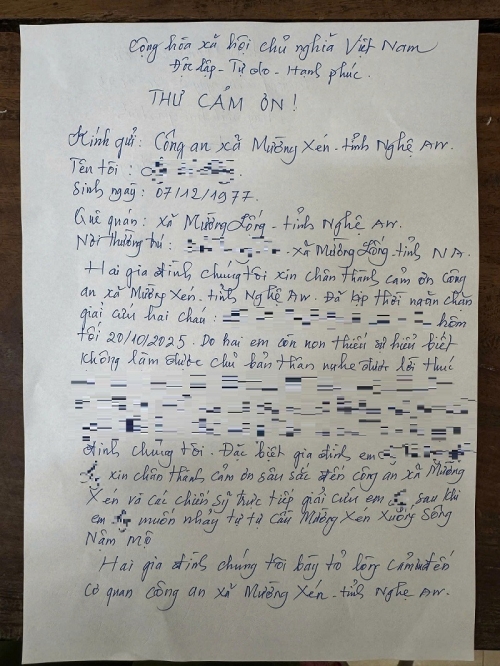 Cộng hòa xã hội chủ nghĩa Việt Nam
Độc lập - Tự do - Hạnh phúc.
THƯ CẢM ƠN!
Kính gửi: Công an xã Mường Xén - tỉnh Nghệ An.
Tên tôi:
Sinh ngày: 07/12/1977.
Quê quán: xã Mường Lống - tỉnh Nghệ An.
Nơi thường trú: - xã Mường Lống - tỉnh N A.
Hai gia đình chúng tôi xin chân thành cảm ơn công
an xã Mường Xén - tỉnh Nghệ An. Đã kịp thời ngăn chặn
giải cứu hai cháu: hôm
tối 20/10/2025. Do hai em còn non thiếu sự hiểu biết
không làm được chủ bản thân nghe được lời thúc
đình chúng tôi. Đặc biệt gia đình em
xin chân thành cảm ơn sâu sắc đến công an xã Mường
Xén và các chiến sỹ trực tiếp giải cứu em sau khi
em muốn nhảy tự tự cầu Mường Xén xuống sông
Nậm Mộ
Hai gia đình chúng tôi bày tỏ lòng cảm ơn đến
cơ quan công an xã Mường Xén - tỉnh Nghệ An.